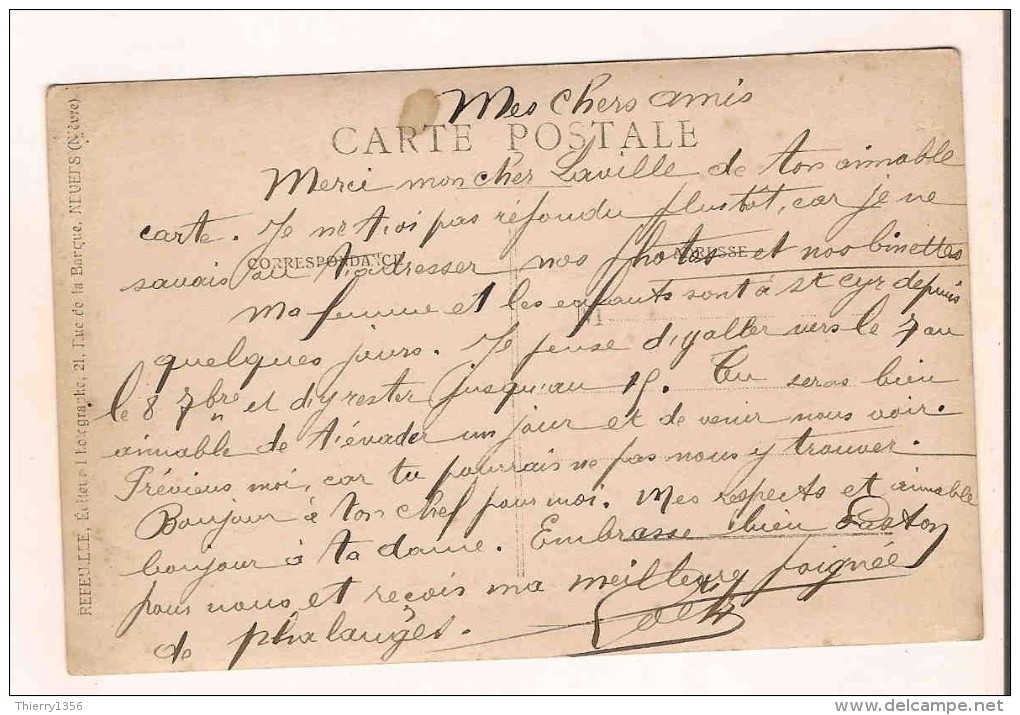 Mes chers amis
CARTE POSTALE
Merci mon cher Laville de ton aimable
carte. Je ne t'ai pas répondu plustôt, car je ne
CORRESPONDANCE
ADRESSE
savais où t'adresser nos photos et nos binettes
Ma femme et les enfants sont à St Cyr depuis
M
quelques jours. Je pense d'y aller vers le 7 au
le 8 7bre et d'y rester jusqu'au 15. Tu seras bien
aimable de t'évader un jour et de venir nous voir.
Préviens moi, car tu pourrais ne pas nous y trouver.
Bonjour à ton chef pour moi. Mes respects et aimable
bonjour à ta dame. Embrasse bien Gaston
pour nous, et reçois ma meilleure poignée
de phalanges.
REFEUILLE, Éditeur-Photographe, 21, Rue de la Barque, NEVERS (Nièvre)
Thierry1356